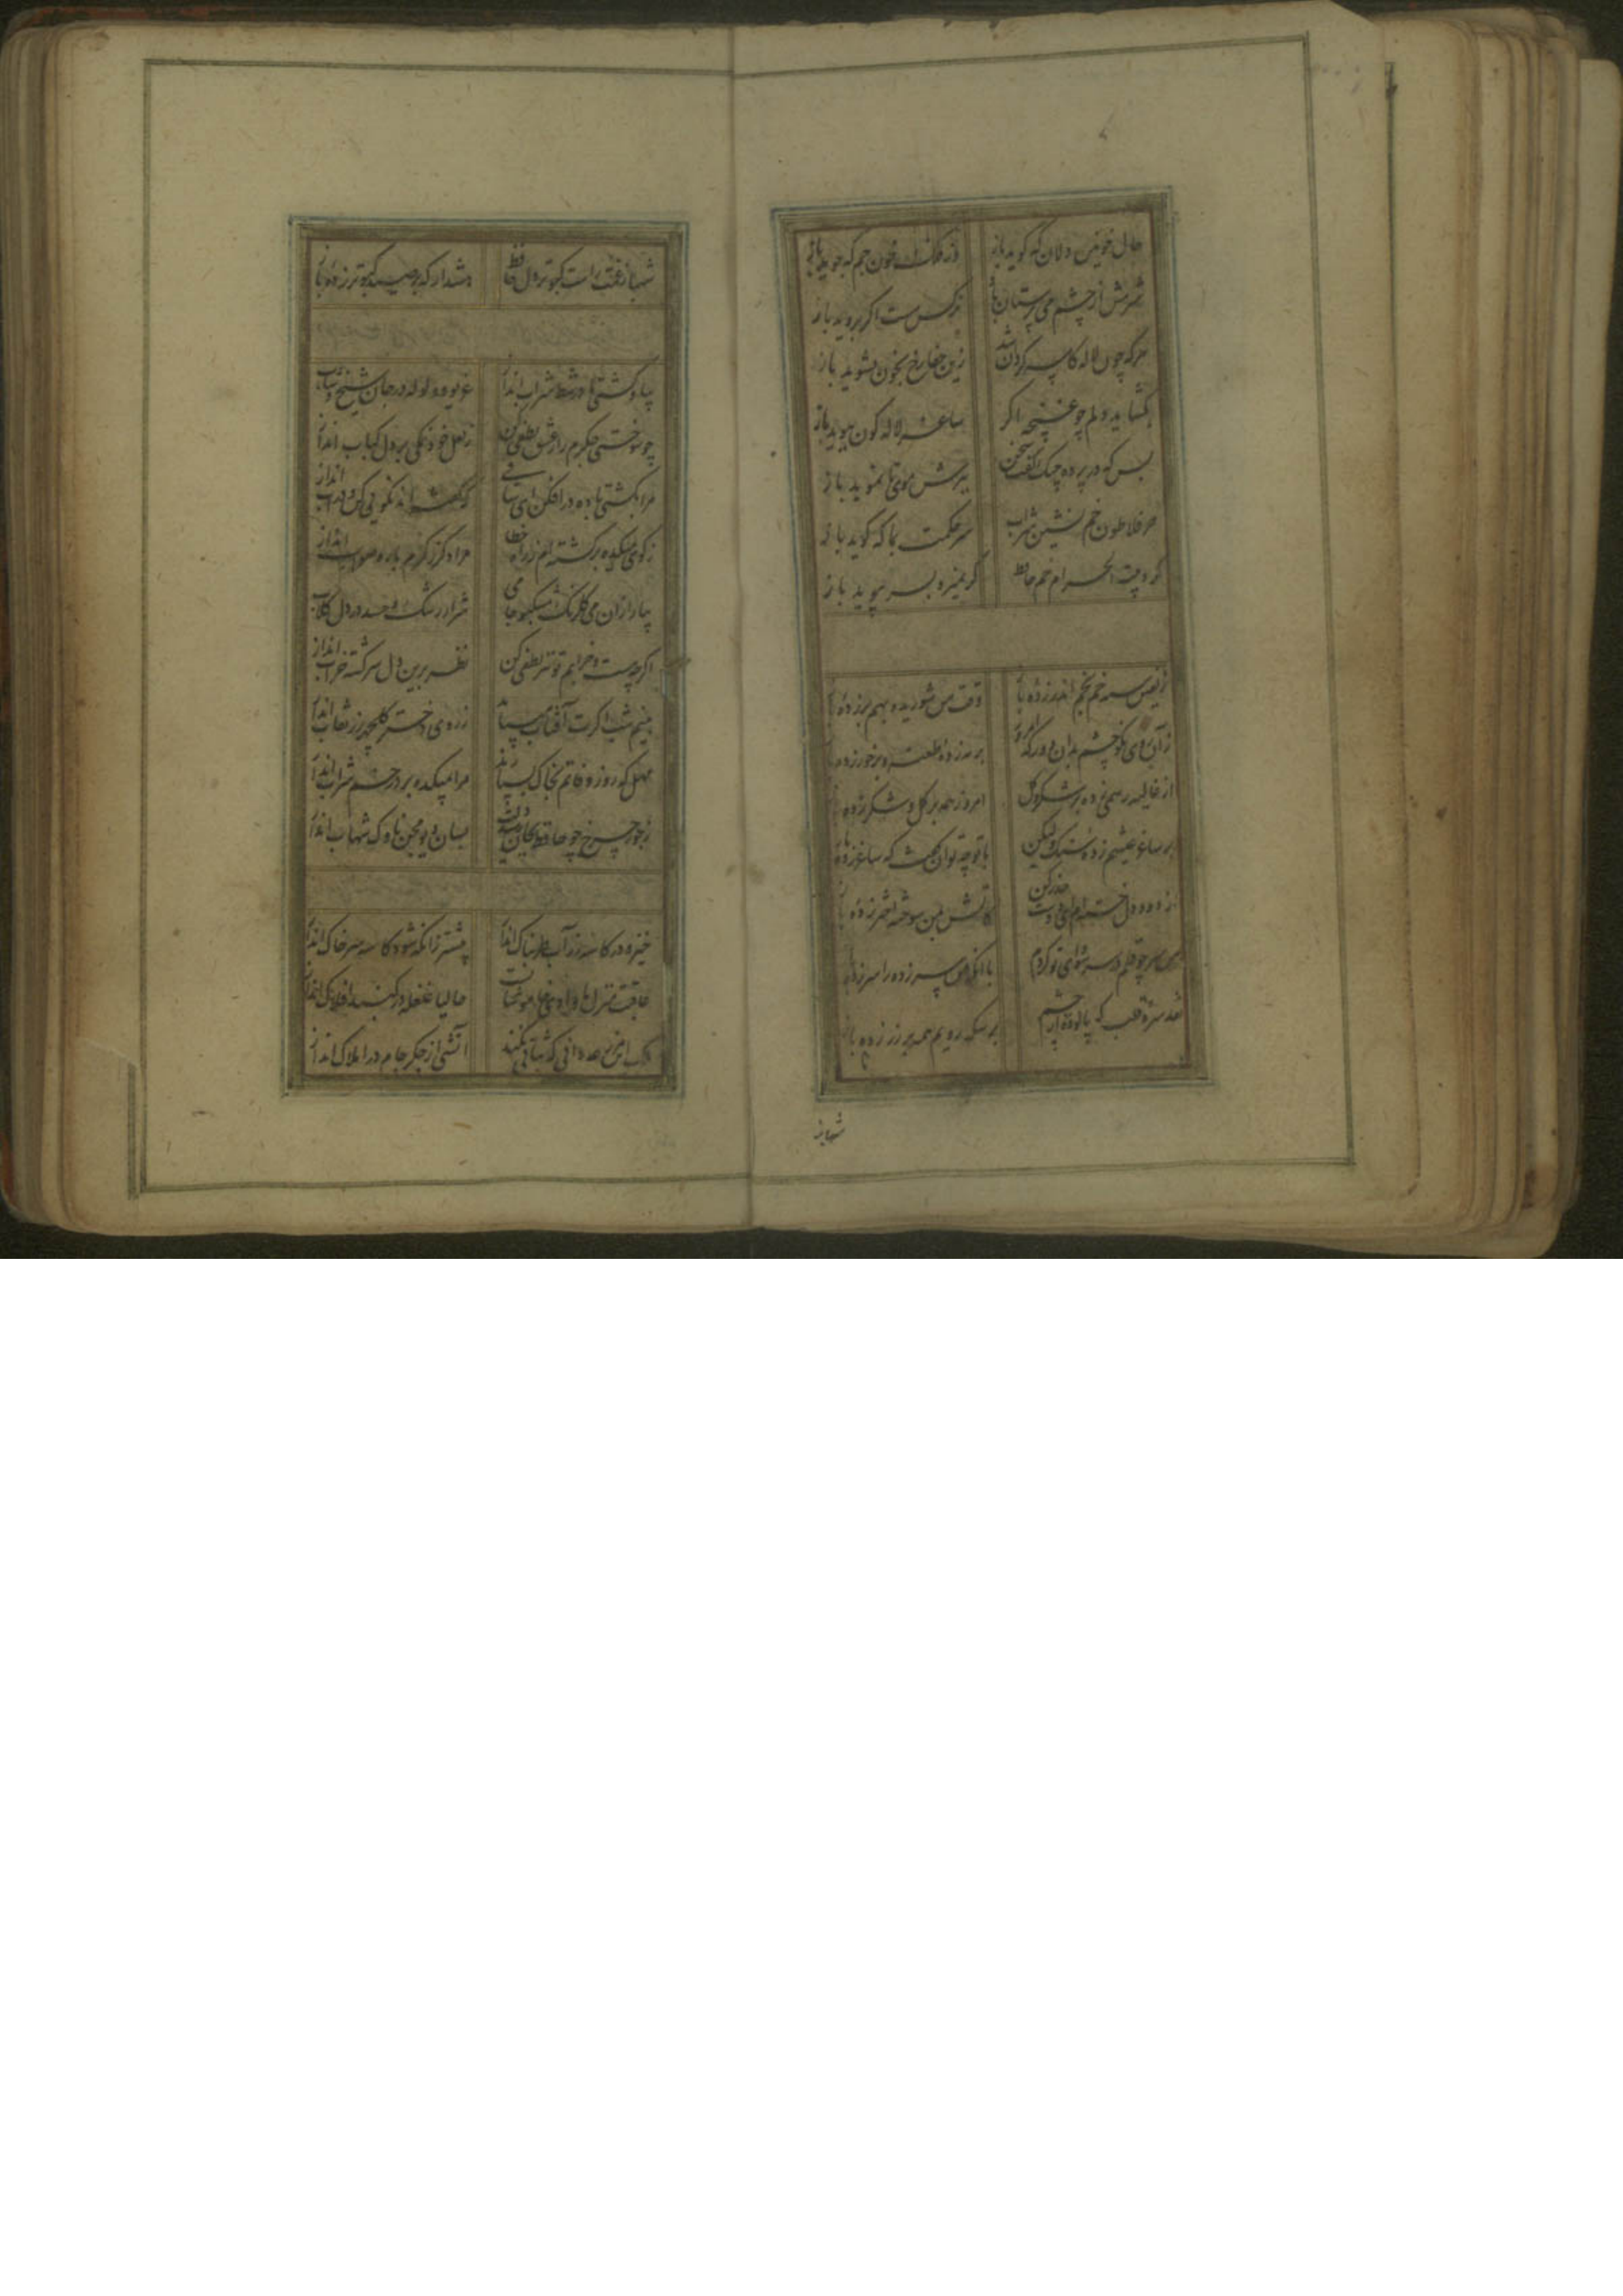 حال خونین دلان که گوید باز وز فلک خون جم که جوید باز
شرمش از چشم می پرستان باد نرگس مست اگر بروید باز
هر که چون لاله کاسه گردان شد زین جفا رخ بخون بشوید باز
بگشاید دلم چو غنچه اگر ساغر لاله گون ببوید باز
بس که در پرده چنگ گفت سخن ببرش موی تا نموید باز
جز فلاطون خم نشین شراب سر حکمت بما که گوید باز
گرد بیت الحرام خم حافظ گر نمیرد بسر بپوید باز
زلفین سیه خم بخم اندر زده باز وقت من شوریده بهم بر زده باز
ز آن روی نکو چشم بدان دور که امروز بر مه زده طعنه و بر خور زده
از غالیه رسمی زده بر شکر و گل امروز همه بر گل و شکر زده باز
بر ساغر عیشم زده سنگ ولیکن با تو چه توان گفت که ساغر زده باز
از دود دل خسته ام ای دوست حذر کن کاتش بمن سوخته اختر زده باز
من سر چو قلم در سر سودای تو کردم با آنکه من سرزده را سر زده باز
نقد سره قلب که پالوده از چشم بر سکه رویم همه بر زر زده باز
شهباز
شهباز غمت راست کبوتر دل حافظ هشدار که بر صید کبوتر زده باز
بیا و کشتی ما در شط شراب انداز غریو و ولوله در جان شیخ و شاب
چو سوختی جگرم را ز عشق لطفی کن ز لعل خود نمکی بر دل کباب انداز
مرا بکشتی باده در افکن ای ساقی که گفته اند نکویی کن و در آب انداز
ز کوی میکده برگشته ام ز راه خطا مرا دگر ز کرم با ره صواب انداز
بیار از آن می گلرنگ مشکبو جامی شرار رشک و حسد در دل گلاب
اگر چه مست و خرابم تو نیز لطفی کن نظر برین دل سرگشته خراب انداز
بنیم شب اگرت آفتاب می باید ز روی دختر گلچهر رز نقاب انداز
مهل که روز وفاتم بخاک بسپارند مرا بمیکده بر در خم شراب انداز
ز جور چرخ چو حافظ بجان رسید دلت بسان دیو محن ناوک شهاب انداز
خیز و در کاسه زر آب طربناک انداز پیشتر زانکه شود کاسه سر خاک انداز
عاقبت منزل ما وادی خاموشانست حالیا غلغله در گنبد افلاک انداز
ملک این مزرعه دانی که ثباتی نکند آتشی از جگر جام در املاک انداز